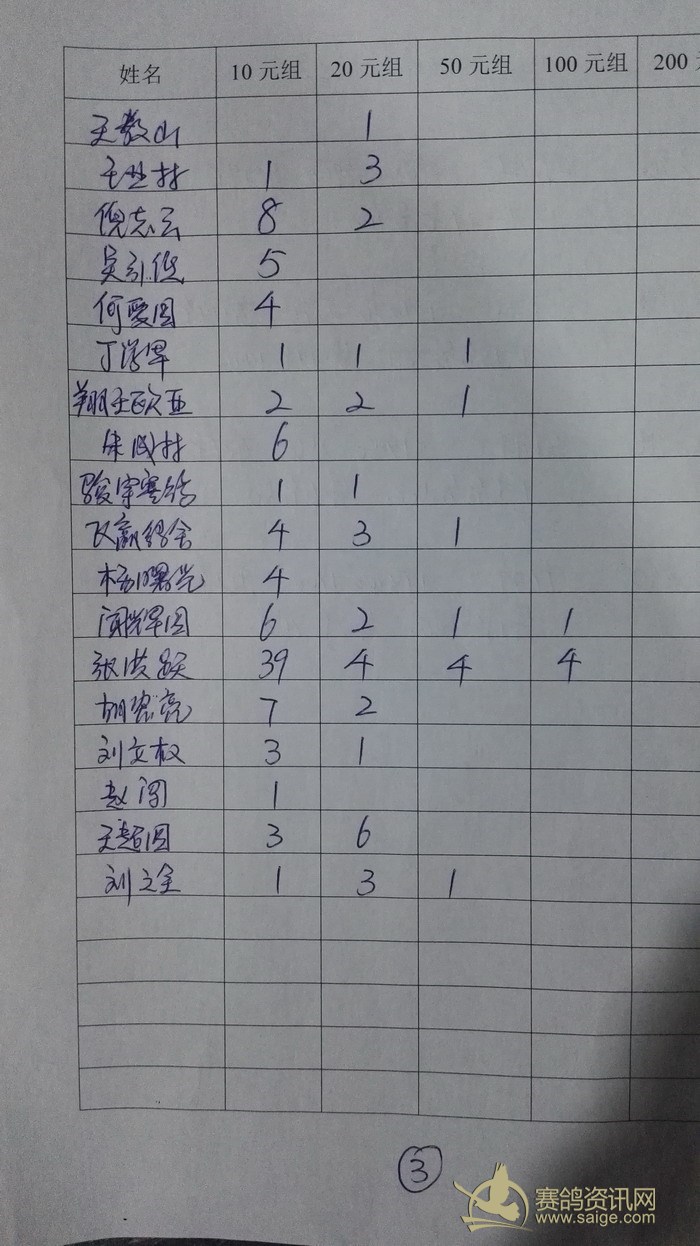 姓名 10元组 20元组 50元组 100元组 200元
王教山 1
王世材 1 3
倪志云 8 2
吴引代 5
何爱国 4
丁学军 1 1 1
翔王欧亚 2 2 1
朱成材 6
骏宇赛鸽 1 1
双赢鸽舍 4 3 1
杨曙光 4
阎辉国 6 2 1 1
张洪跃 39 4 4 4
胡宏亮 7 2
刘文权 3 1
赵闯 1
王超国 3 6
刘立全 1 3 1
3
赛鸽资讯网
www.saige.com